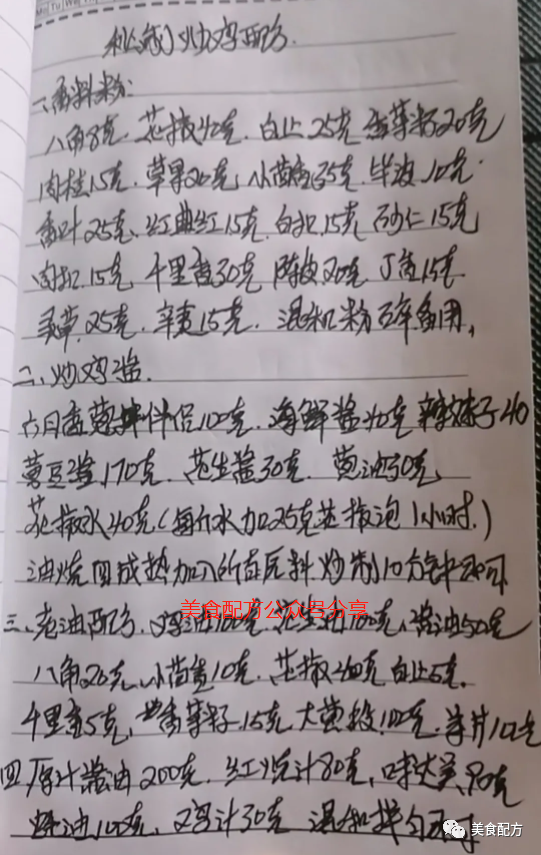 秘制炒鸡配方.
一、香料粉:
八角8克. 花椒42克. 白止25克 香菜籽20克
肉桂15克. 草果20克, 小茴香35克. 毕波10克.
香叶25克、红曲红15克. 白扣.15克 砂仁15克
肉扣.15克 千里香30克 陈皮20克 丁香15克
灵草.25克. 辛夷15克. 混和粉碎备用,
二、炒鸡酱.
六月香葱拌伴侣100克. 海鲜酱40克 辣妹子40
黄豆酱170克、花生酱30克 葱油50克,
花椒水40克(每斤水加25克花椒泡1小时.)
油烧四成热加入所有原料炒制10分钟即可
美食配方公众号分享
三、老油配方. 鸡油100克. 花生油100克, 酱油50克
八角20克、小茴香10克、花椒40克 白止5克.
千里香5克, 香菜籽.15克. 大葱段100克. 姜片10克
四厚汁酱油200克. 红烧汁80克, 味达美90克
蚝油100克, 鸡汁30克 混和拌匀即可
美食配方